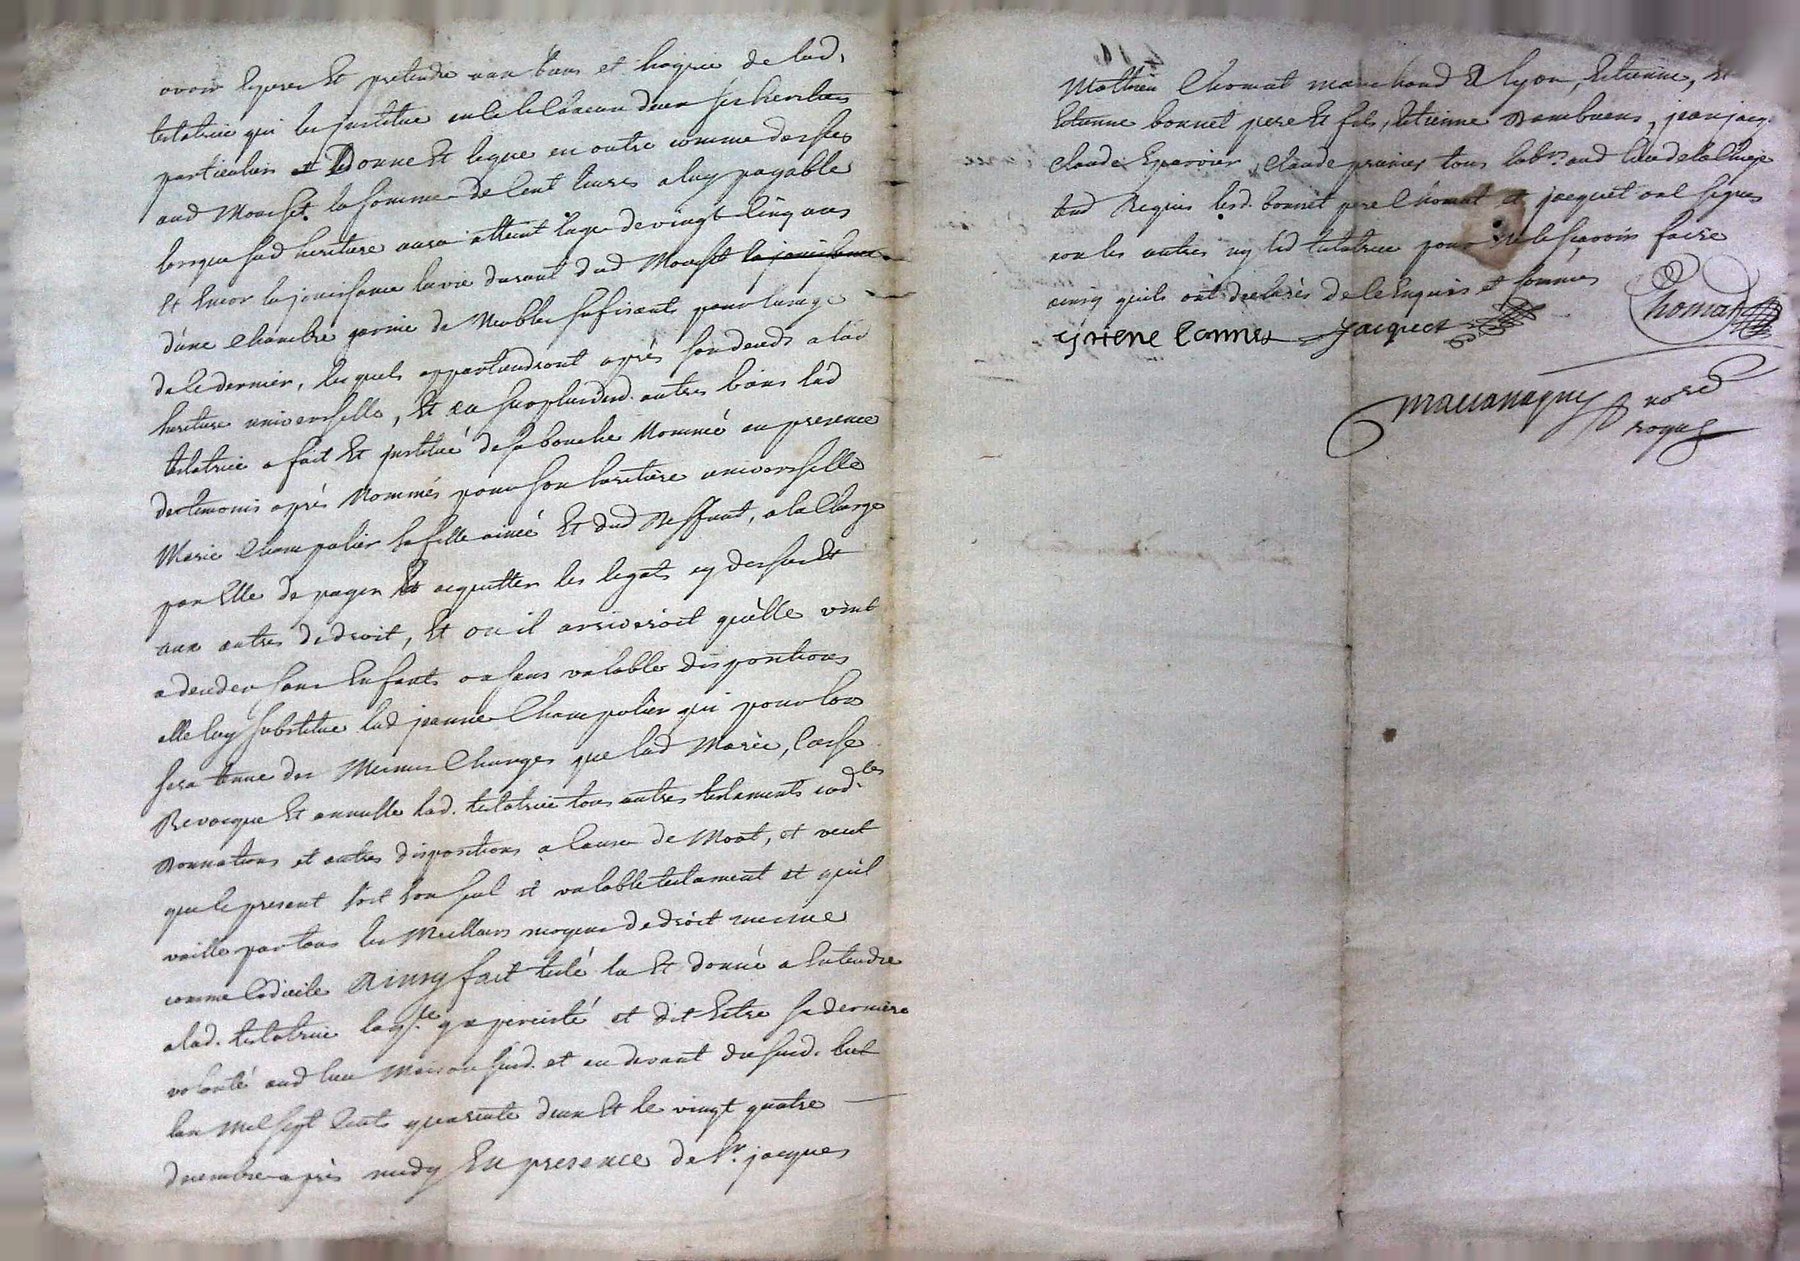 avoir esperer Et pretendre aux biens et hoyrie de lad.
testatrice qui les institue en ce le chacun deux ses heritiers
particuliers et Donne Et legue en outre comme dessus
aud Mourset la somme de Cent livres a luy payable
lorsque sad heritiere aura atteint l'age de vingt cinq ans
Et Encor la jouissance sa vie durant dud Mourset la jouissance
d'une Chambre garnie de Meubles sufisants pour l'usage
de ce dernier, lesquels appartiendront après son deceds a lad
heritiere universelle, Et au surplus desd. autres biens lad
testatrice a fait Et institué de sa bouche Nommé en presence
des temoins après Nommés pour son heritiere universelle
Marie Champalier sa fille ainée Et dud Deffunt, a la Charge
par Elle de payer Et acquitter les legats cy dessus Et
aux autres de droit, Et ou il arriveroit qu'elle vint
a deceder sans Enfants ou sans valables dispositions
elle luy substitue lad jeanne Champalier qui pour lors
sera tenue des Mesmes Charges que lad Marie, Casse
Revocque Et annulle lad. testatrice tous autres testaments cod.les
Donnations et autres dispositions a Cause de Mort, et veut
que le present soit son seul et valable testament et qu'il
vaille par tous les Meilleurs moyens de droit mesme
comme Codicile Ainsy fait testé lu Et donné a Entendre
a lad. testatrice laq.le y a percisté et dit Estre sa derniere
volonté aud lieu Maison susd. et au devant du susd. lict
lan Mil sept Cents quarente deux Et le vingt quatre
decembre après midy En presence de Sr. jacques
Mathieu Chomat marchand A lyon, Estienne, Et
Estienne bonnet pere Et fils, Estienne Dambuens, jean jacq.
Claude Eparvier, Claude prunier tous lab.rs aud lieu de
tad Requis lesd. bonnet pere Chomat et jacquet ont signes
non les autres ny lad testatrice pour ne le sçavoir faire
ainsy quils ont declarés de ce Enquis et sommés
Etiene bonnet jacquet Chomat
no.re
royal